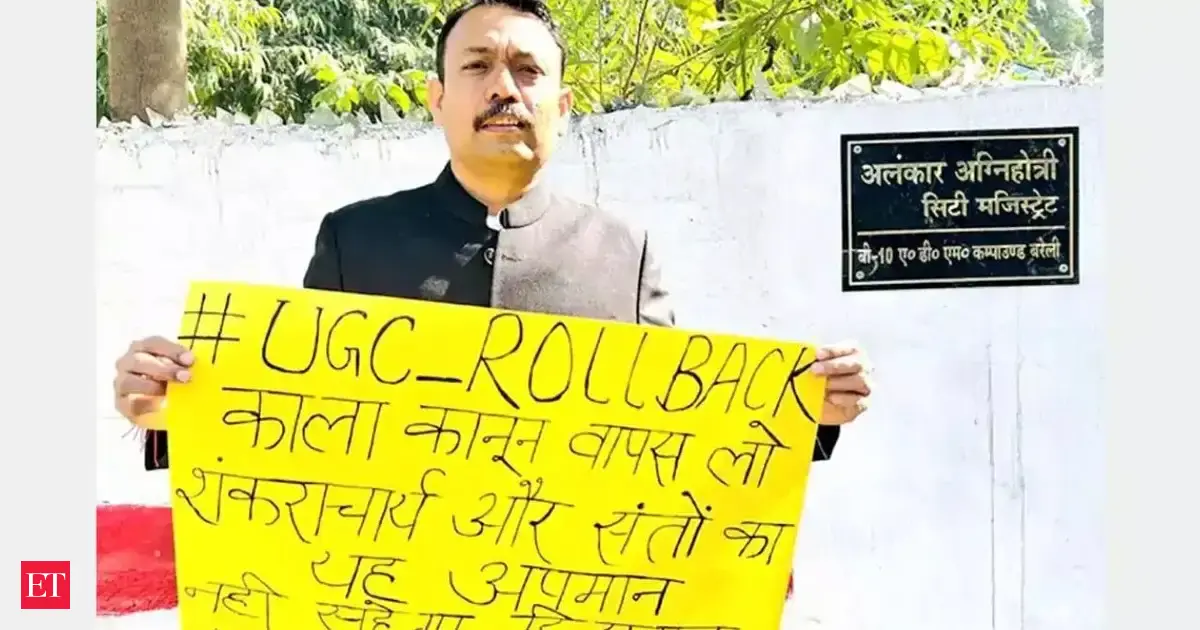 अलंकार अग्निहोत्री
सिटी मजिस्ट्रेट
बी-10 ए० डी० एम० कम्पाउण्ड बरेली
#UGC_ROLLBACK
काला कानून वापस लो
शंकराचार्य और संतों का
यह अपमान
नही
ET